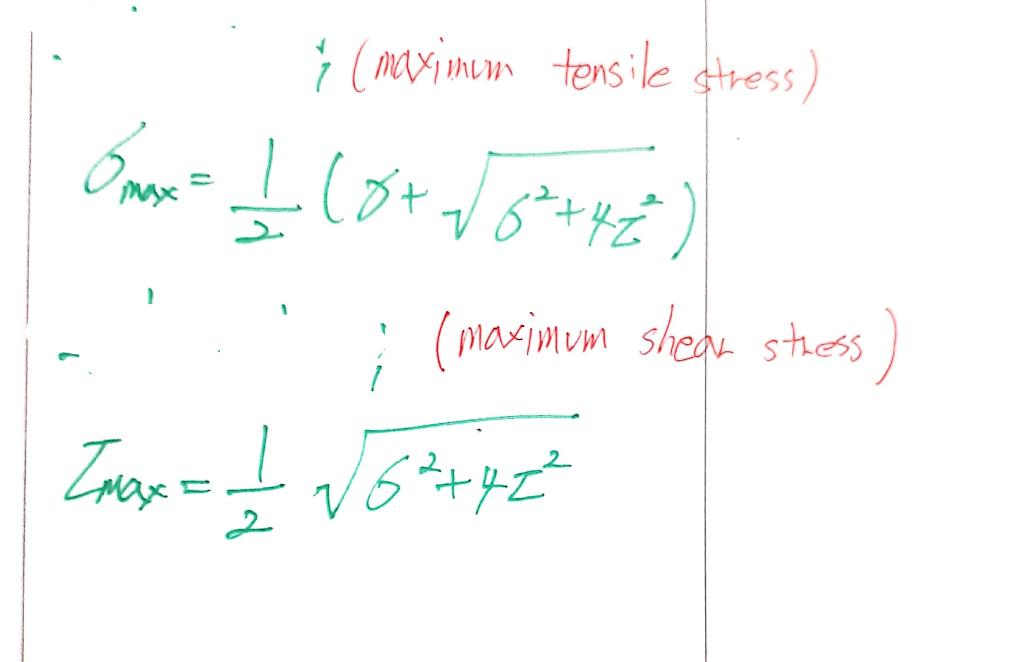 ; (maximum tensile stress)
σmax = 1/2 (σ + √(σ² + 4τ²))
; (maximum shear stress)
τmax = 1/2 √(σ² + 4τ²)